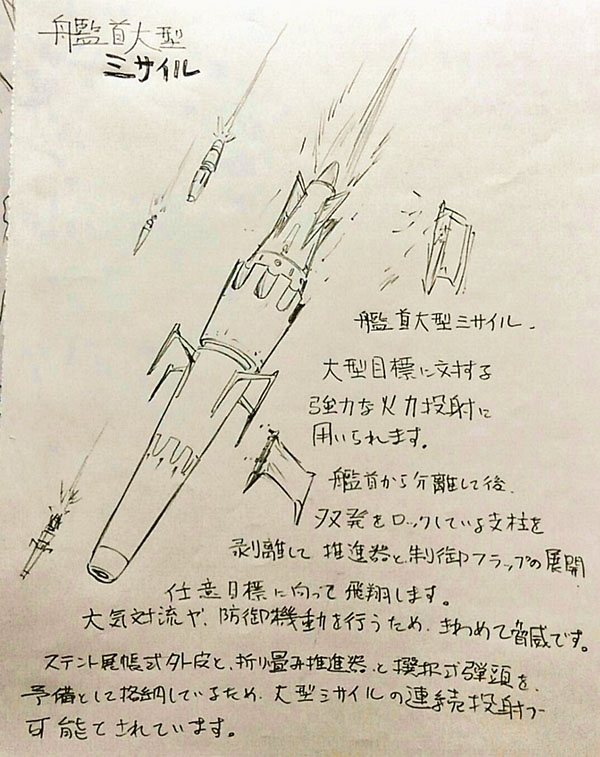 艦首大型
ミサイル
艦首大型ミサイル.
大型目標に対する
強力な火力投射に
用いられます。
艦首から分離して後.
双発をロックしている支柱を
剥離して 推進器と制御フラップの展開
任意目標に向って飛翔します。
大気対流や、防御機動を行うため、きわめて脅威です。
ステント尾帳式外皮と、折り畳み推進器、と 撰択式弾頭を、
予備として格納しているため、大型ミサイルの連続投射が
可能とされています。